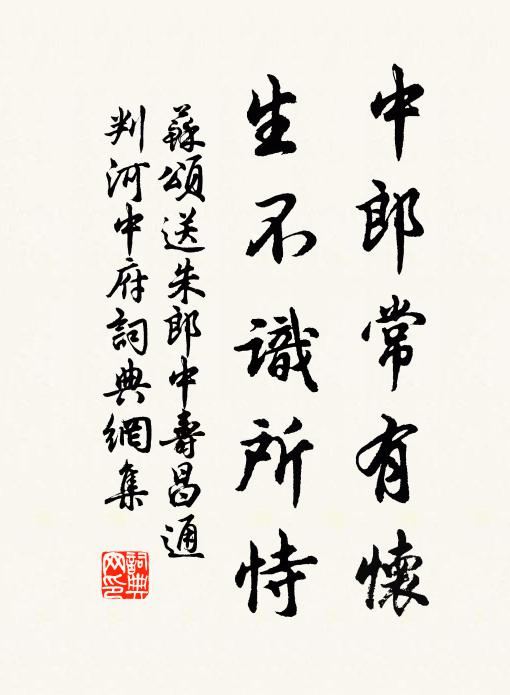 中郎常有懷
生不識所恃
蘇頌送朱郎中壽昌通
判河中府詞典網集
詞典網印